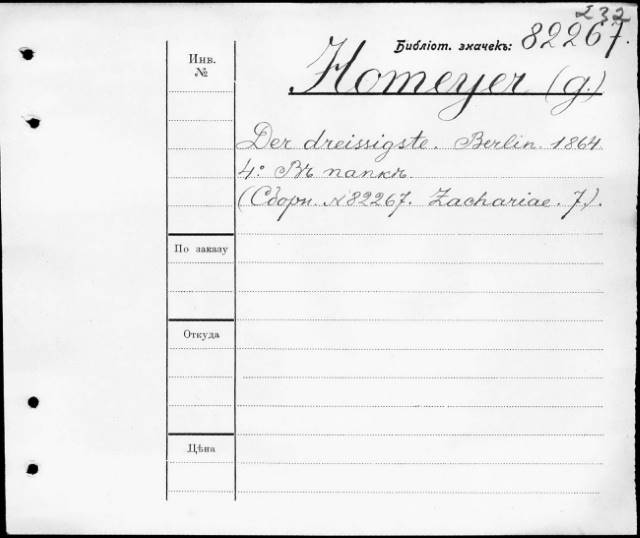 232
Библіот. значекъ: 82267.
Инв.
№
Homeyer (g.)
Der dreissigste. Berlin. 1864
4:o Въ папкѣ.
(Сборн. №82267. Zachariae. 7).
По заказу
Откуда
Цѣна